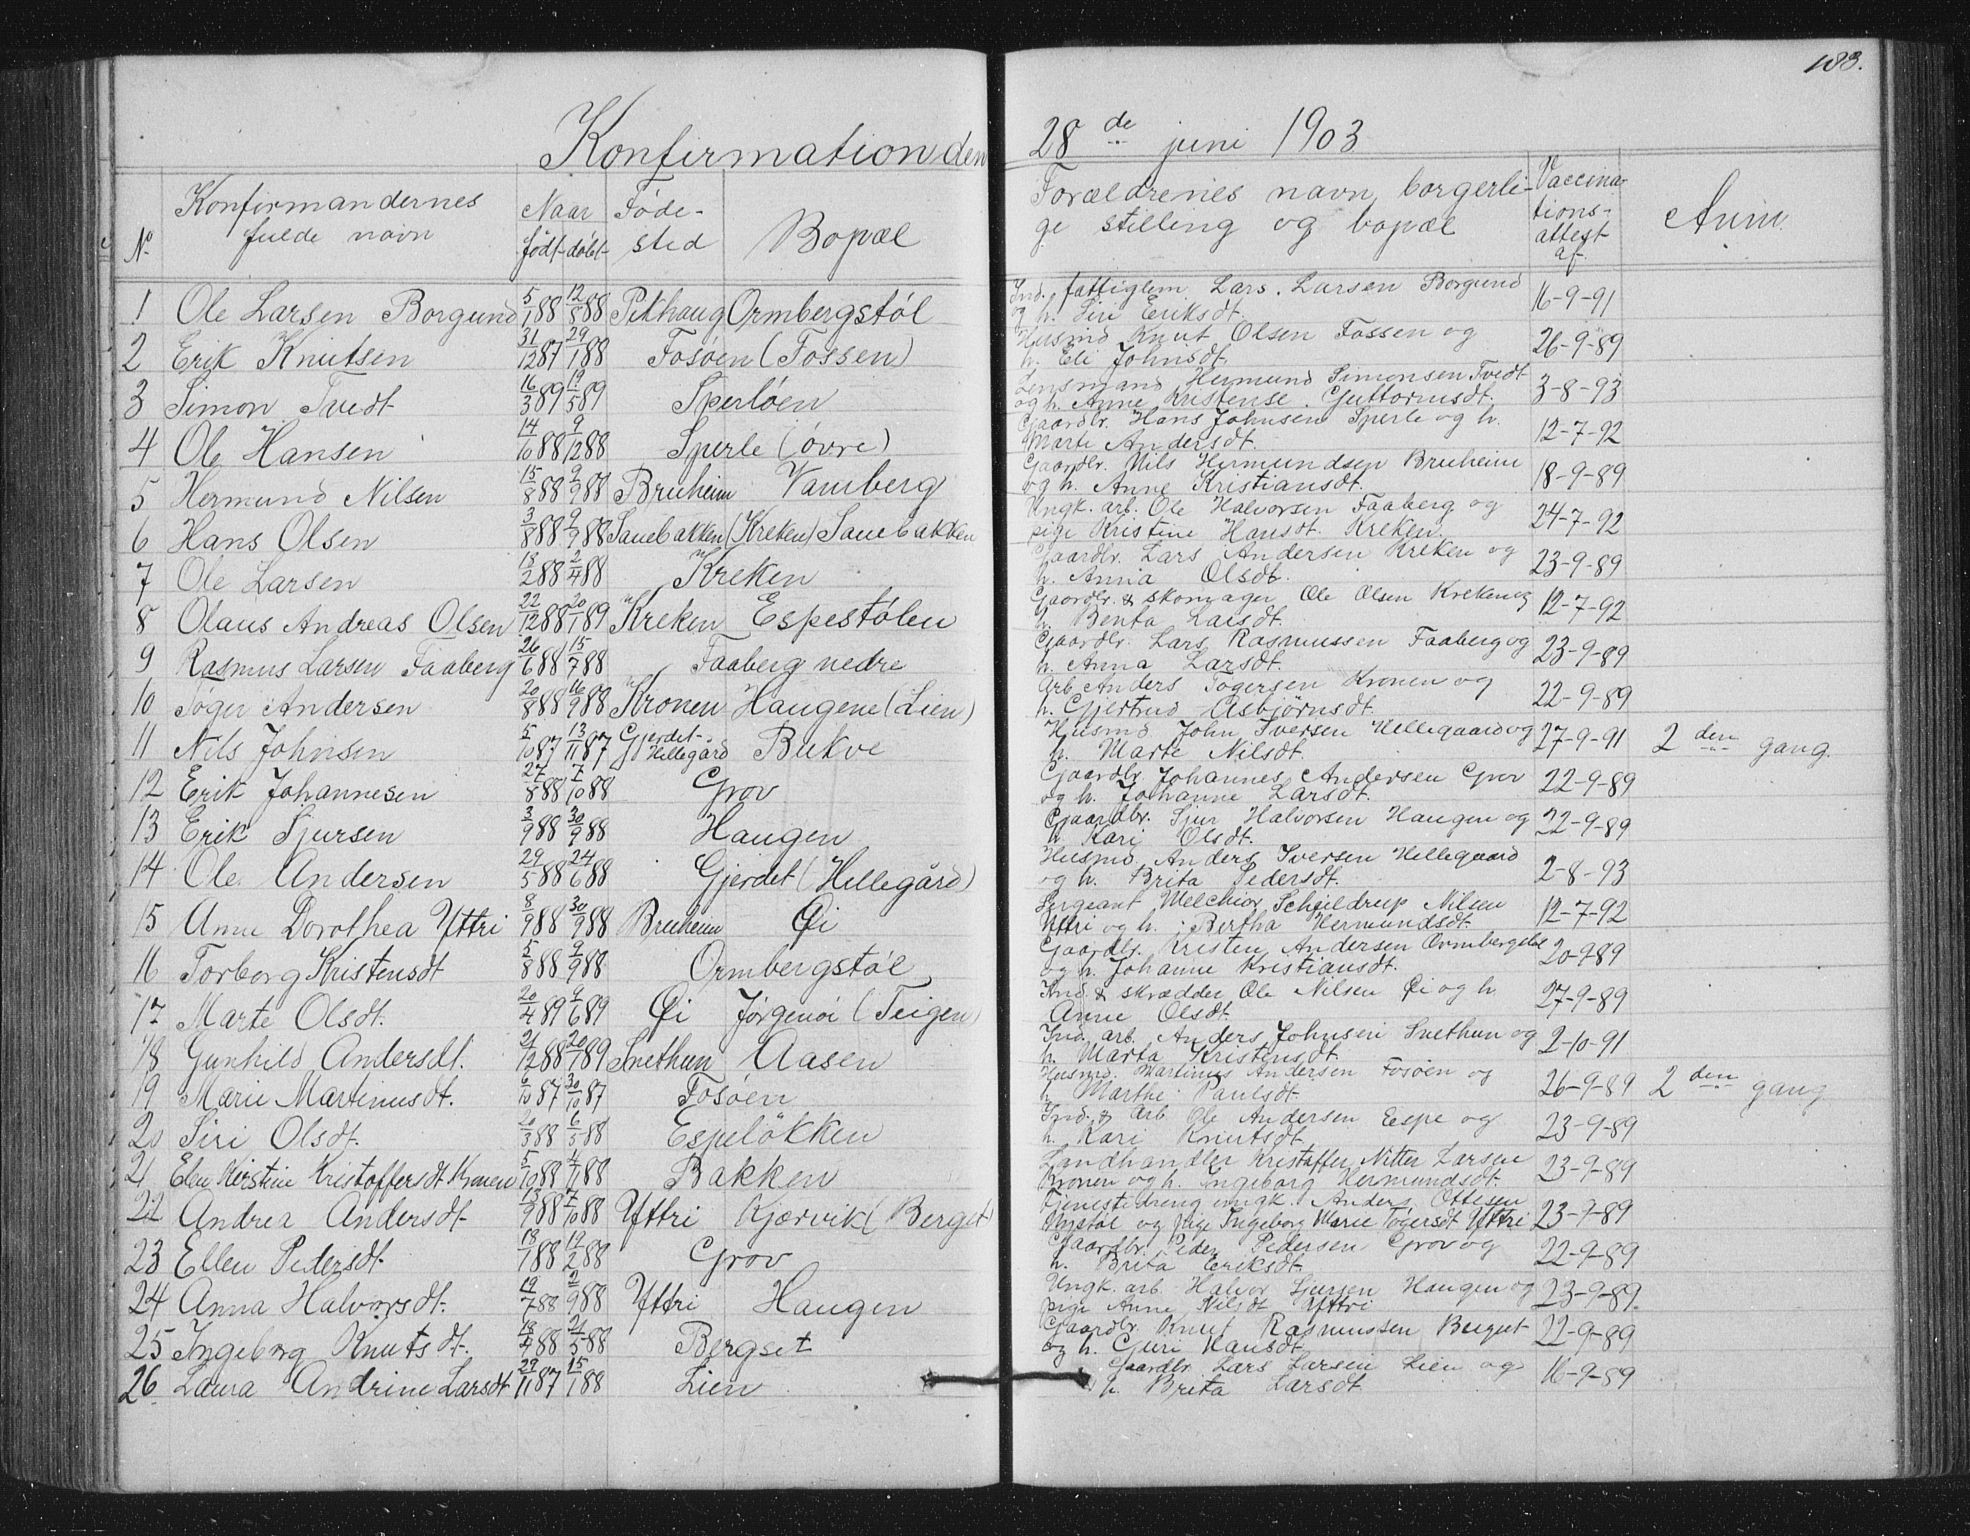 183.
Konfirmation den 28de juni 1903
No Konfirmandernes fulde navn Naar født døbt Fødested Bopæl Forældrenes navn, borgerlige stilling og bopæl Vaccinationsattest af Anm.
1 Ole Larsen Borgund 5/1 88 12/5 88 Pikhaug Ormbergstøl Ind. fattiglem Lars Larsen Borgund og h. Siri Eriksdt. 16-9-91
2 Erik Knutsen 31/12 87 29/1 88 Fosøen (Fossen) Husmd Knut Olsen Fossen og h. Eli Johnsdt. 26-9-89
3 Simon Tvedt 16/3 89 19/5 89 Sperløen Lensmand Hermund Simonsen Tvedt og h. Anne Kristense Guttormsdt. 3-8-93
4 Ole Hansen 14/10 88 9/12 88 Sperle (øvre) Gaardbr. Hans Johnsen Sperle og h. Marte Andersdt. 12-7-92
5 Hermund Nilsen 15/8 88 9/9 88 Bruheim Vamberg Gaardbr. Nils Hermundsen Bruheim og h. Anne Kristiansdt. 18-9-89
6 Hans Olsen 3/8 88 9/9 88 Sauebakken (Kreken) Sauebakken Ungk. arb. Ole Halvorsen Faaberg og pige Kristine Hansdt. Kreken. 24-7-92
7 Ole Larsen 18/2 88 2/4 88 Kreken Gaardbr. Lars Andersen Kreken og h. Anna Olsdt. 23-9-89
8 Olaus Andreas Olsen 22/12 88 20/1 89 Kreken Espestølen Gaardbr. & skomager Ole Olsen Kreken og h. Benta Larsdt. 12-7-92
9 Rasmus Larsen Faaberg 26/6 88 15/7 88 Faaberg nedre Gaardbr. Lars Rasmussen Faaberg og h. Anna Larsdt. 23-9-89
10 Tøger Andersen 20/8 88 16/9 88 Kronen Haugene (Lien) Arb. Anders Tøgersen Kronen og h. Gjertrud Asbjørnsdt. 22-9-89
11 Nils Johnsen 5/10 87 13/11 87 Gjerdet Hillegård Bukve Husmd John Iversen Hellegaard og h. Marte Nilsdt. 27-9-91 2den gang.
12 Erik Johannesen 27/8 88 7/10 88 Grov Gaardbr. Johannes Andersen Grov og h. Johanne Larsdt. 22-9-89
13 Erik Sjursen 3/9 88 30/9 88 Haugen Gaardbr. Sjur Halvorsen Haugen og h. Kari Olsdt. 22-9-89
14 Ole Andersen 29/5 88 24/6 88 Gjerdet (Hillegård) Husmd. Anders Iversen Hellegaard og h. Brita Pedersdt. 2-8-93
15 Anne Dorothea Yttri 8/9 88 30/9 88 Bruheim Øi Sergeant Melchior Schjeldrup Nilsen Yttri og h. Bertha Hermundsdt. 12-7-92
16 Torborg Kristensdt 5/8 88 9/9 88 Ormbergstøl Gaardbr. Kristen Andersen og h. Johanne Kristiansdt. 20-9-89
17 Marte Olsdt. 20/4 89 9/6 89 Øi Jørgenøi (Teigen) Ind. & skrædder Ole Nilsen Øi og h. Anne Olsdt. 27-9-89
18 Gunhild Andersdt. 21/12 88 20/1 89 Snethun Aasen Ind. arb. Anders Johnsen Snethun og h. Marta Kristensdt. 2-10-91
19 Marie Martinusdt. 6/10 87 30/10 87 Fosøen Husmd. Martinus Andersen Fosøen og h. Marthe Paulsdt. 26-9-89 2den gang
20 Siri Olsdt. 20/3 88 6/5 88 Espeløkken Ind. & arb. Ole Andersen Espe og h. Kari Knutsdt. 23-9-89
21 Elen Kirstine Kristoffersdt Kronen 5/10 88 4/11 88 Bakken Landhandler Kristoffer Nitter Larsen Kronen og h. Ingeborg Hermundsdt. 23-9-89
22 Andrea Andersdt 13/9 88 7/10 88 Yttri Kjærvik (Berget) Tjenestedreng ungk. Anders Ottesen Nystøl og pige Ingeborg Marie Tøgersdt Yttri 23-9-89
23 Ellen Pedersdt. 18/1 88 19/2 88 Grov Gaardbr. Peder Pedersen Grov og h. Brita Eriksdt. 22-9-89
24 Anna Halvorsdt. 19/7 88 2/9 88 Yttri Haugen Ungk. arb. Halvor Sjursen Haugen og pige Anne Nilsdt Yttri 23-9-89.
25 Ingeborg Knutsdt. 18/4 88 21/5 88 Bergset Gaardbr. Knut Rasmussen Bergset og h. Guri Hansdt. 22-9-89
26 Laura Andrine Larsdt 29/11 87 15/1 88 Lien Gaardbr Lars Larsen Lien og h. Brita Larsdt. 16-9-89